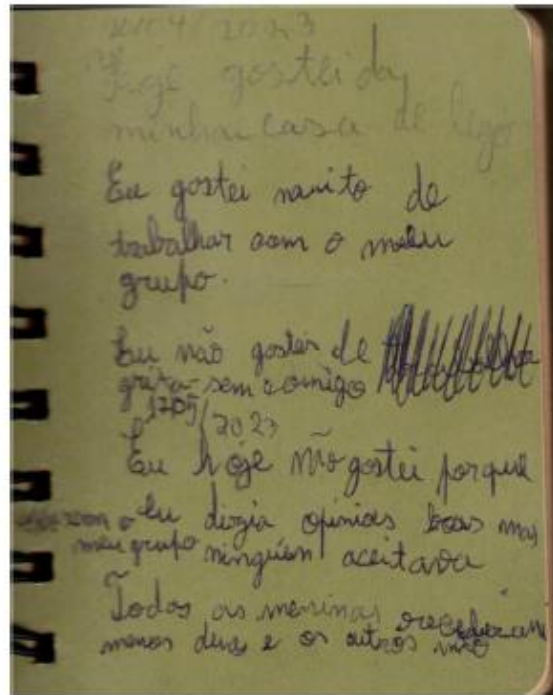 /04/2023
Hoje gostei da
minha casa de lego
Eu gostei muito de
trabalhar com o meu
grupo.
Eu não gostei de
gritar-sem comigo
1705/2023
Eu hoje não gostei porque
eu dizia opiniões boas mas
com o meu grupo ninguém aceitava
Todos as meninas receberam
menos duas e os outros não